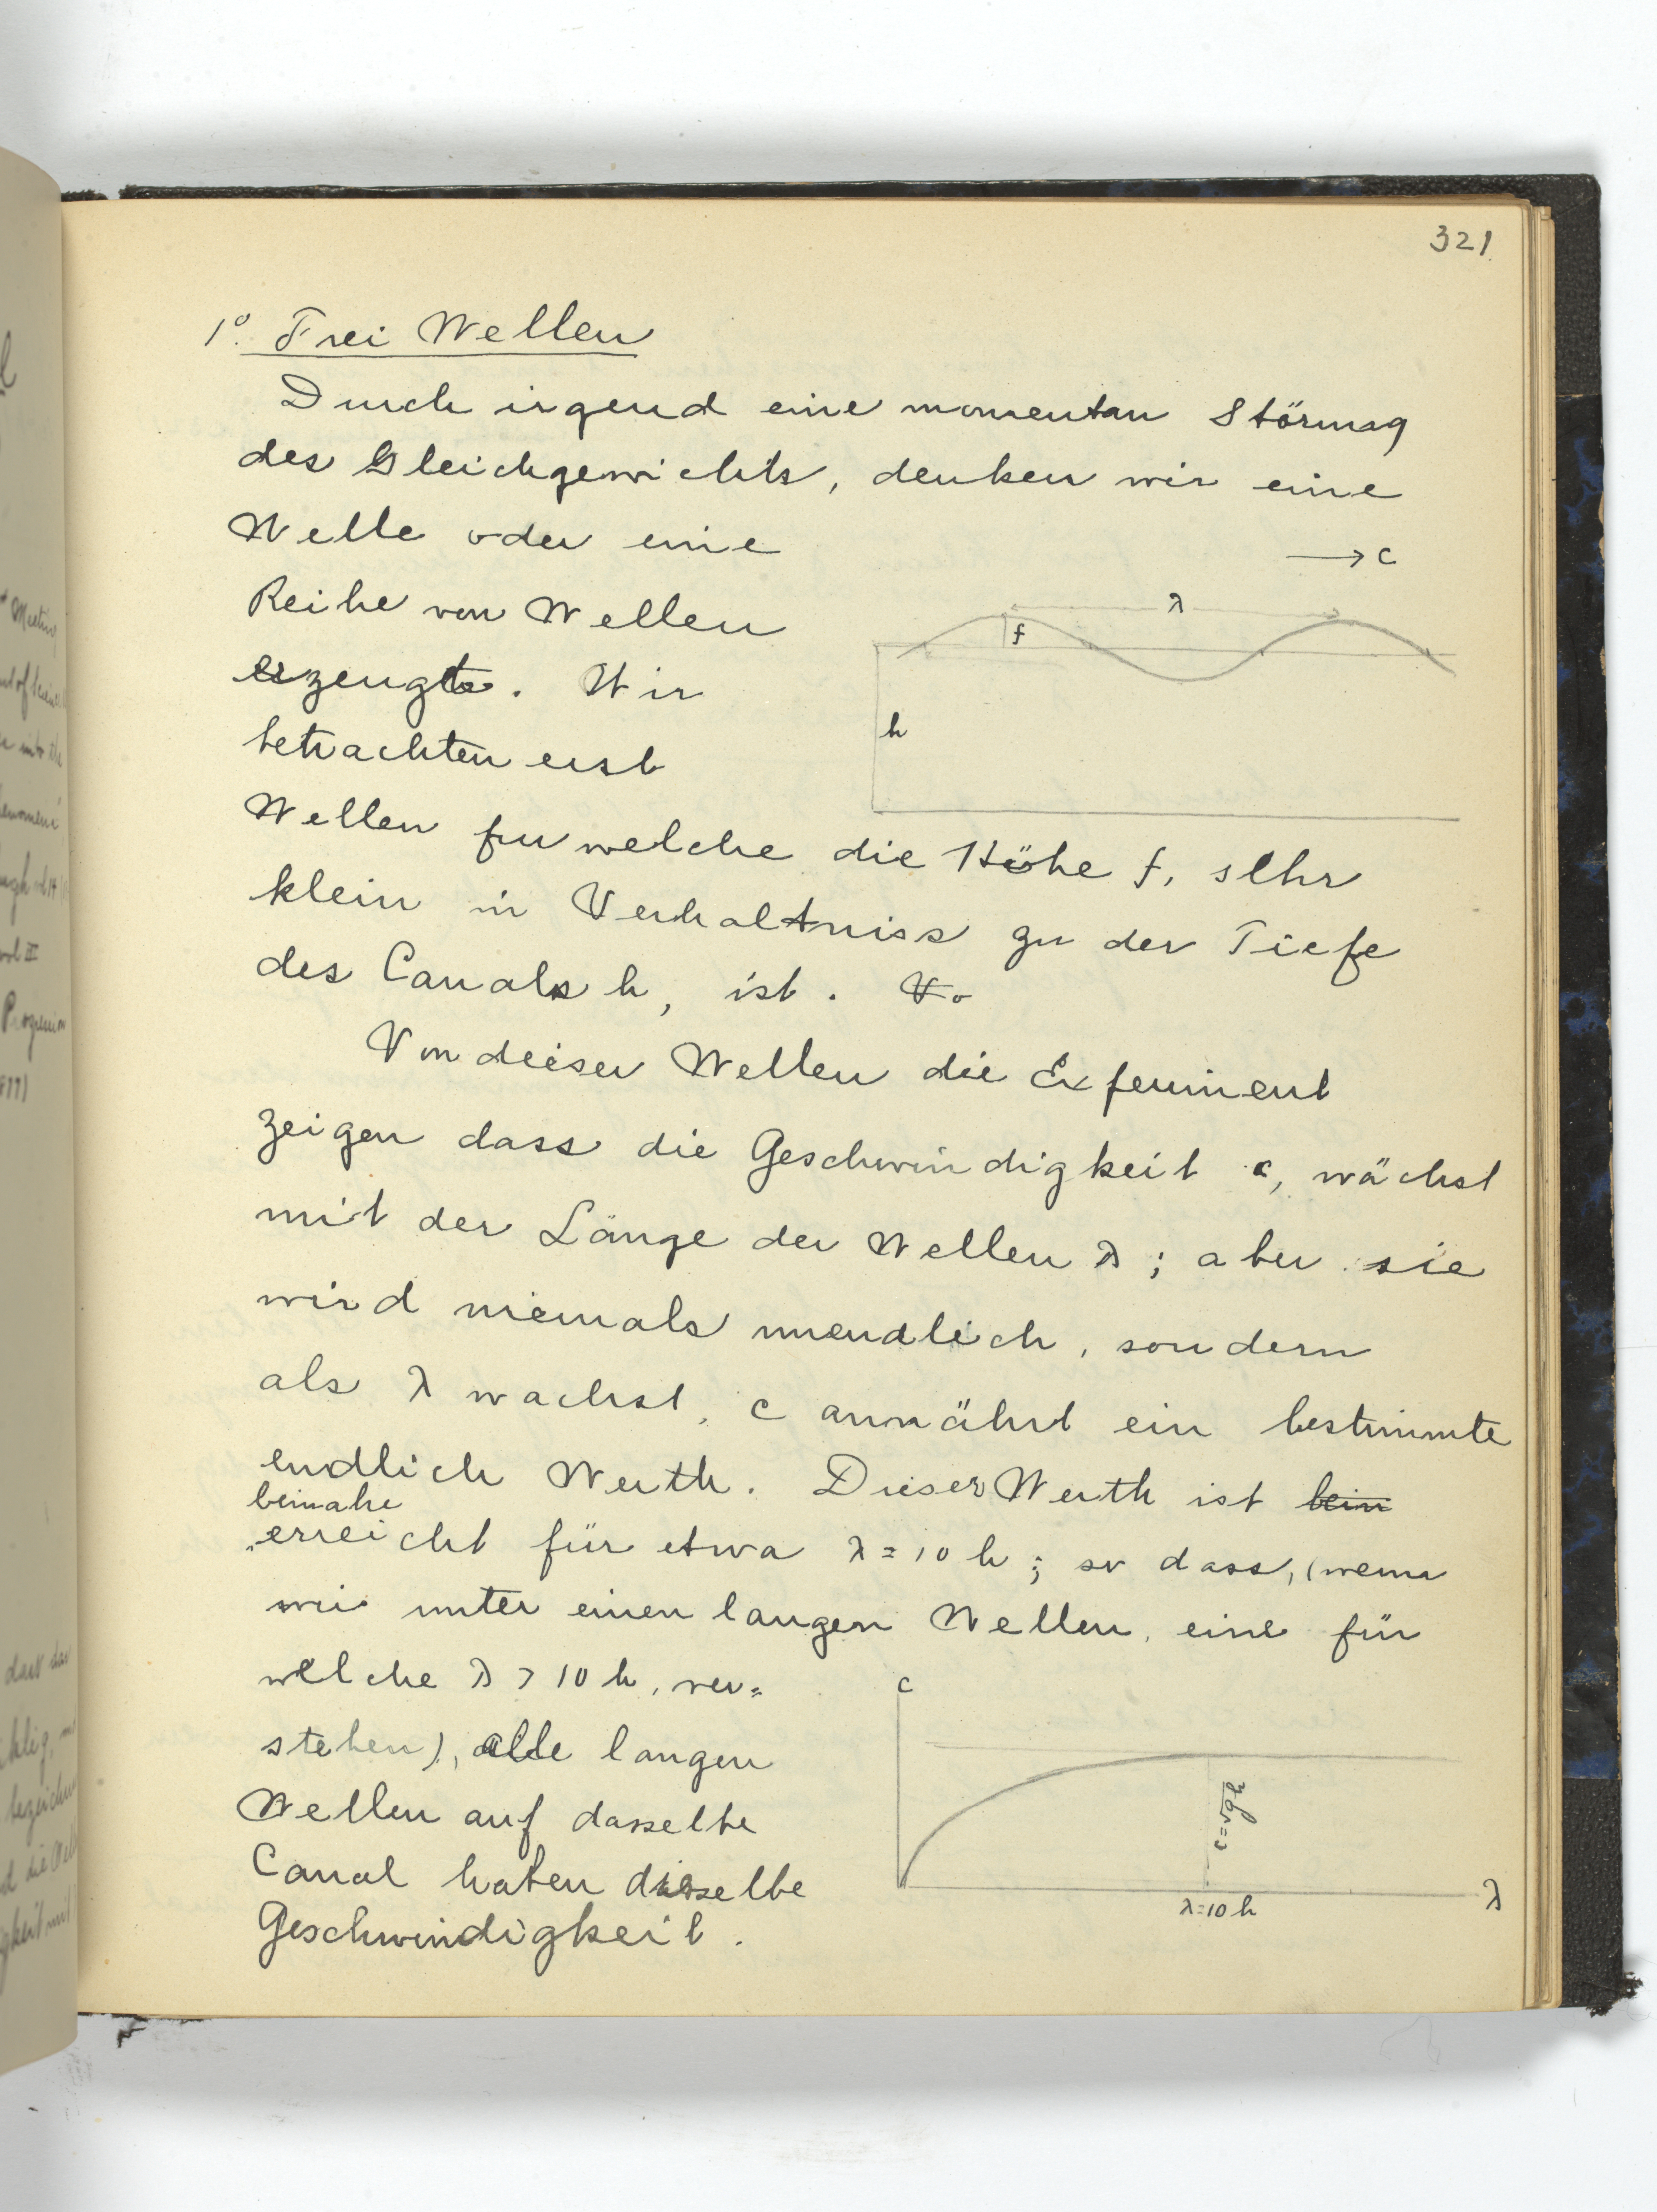 321
1º. Frei Wellen
Durch irgend eine momentan Störung
des Gleichgewichts, denken wir eine
Welle oder eine
Reihe von Wellen
erzeugte. Wir
betrachten erst
→ c
λ
f
h
Wellen fur welche die Höhe f, sehr
klein in Verhaltniss zu der Tiefe
des Canals h, ist. Vo
Von dieser Wellen die Experiment
zeigen dass die Geschwindigkeit c, wächst
mit der Länge der Wellen λ; aber sie
wird niemals unendlich, sondern
als λ wachst, c annährt ein bestimmte
endlich Werth. Dieser Werth ist bein
beinahe
erreicht für etwa λ = 10 h; so dass, (wenn
wir unter einen langen Wellen, eine für
welche λ > 10 h, ver=
stehen), alle langen
Wellen auf dasselbe
Canal haben dieselbe
Geschwindigkeit.
c
c = √gh
λ = 10 h
λ